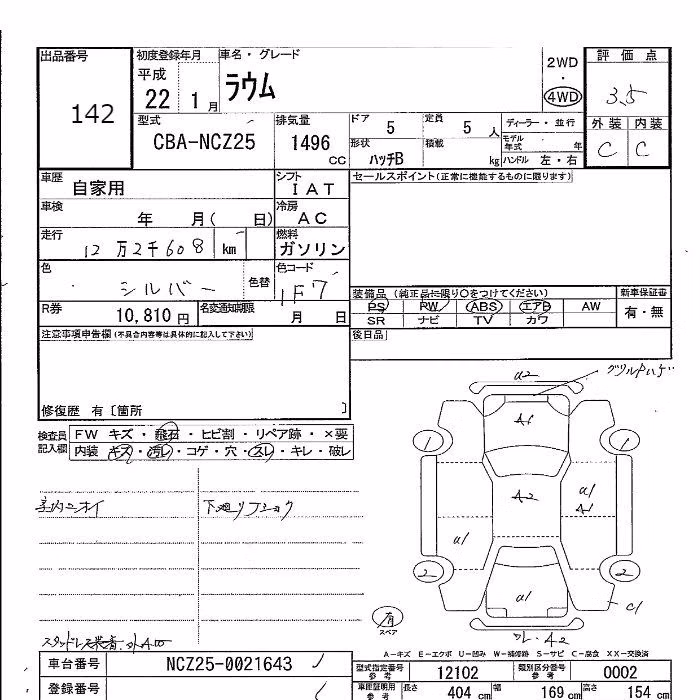 出品番号 初度登録年月 車名・グレード 2WD 評価点
142 平成 22 1月 ラウム ・ 4WD 3.5
型式 排気量 ドア 5 定員 5人 ディーラー・並行 外装 内装
CBA-NCZ25 1496cc 形状 ハッチB 積載 kg モデル年式 年 C C
ハンドル 左・右
車歴 自家用 シフト IAT セールスポイント(正常に機能するものに限ります)
車検 年 月( 日) 冷房 AC
走行 12万2千608km 燃料 ガソリン
色 シルバー 色替 色コード 1F7
装備品 (純正品に限り○をつけてください) 新車保証書
PS PW ABS エアB AW 有・無
R券 10,810円 名変通知期限 月 日 SR ナビ TV カワ
注意事項申告欄(不具合内容等は具体的に記入して下さい) 後日品
修復歴 有〔箇所 〕
検査員 FW キズ・飛石・ヒビ割・リペア跡・×要
記入欄 内装 キズ・汚レ・コゲ・穴・スレ・キレ・破レ
室内ニオイ 下廻リフショク
スタッドレス装着
A2 グリルPハゲ
A1
1 1
A2 a1 A1
a1
2 2
a1 C1
有 スペア
A-キズ E-エクボ U-凹み W-補修跡 S-サビ C-腐食 XX-交換済
車台番号 NCZ25-0021643 型式指定番号参考 12102 類別区分番号参考 0002
登録番号 車庫証明用参考 長さ 404cm 幅 169cm 高さ 154cm